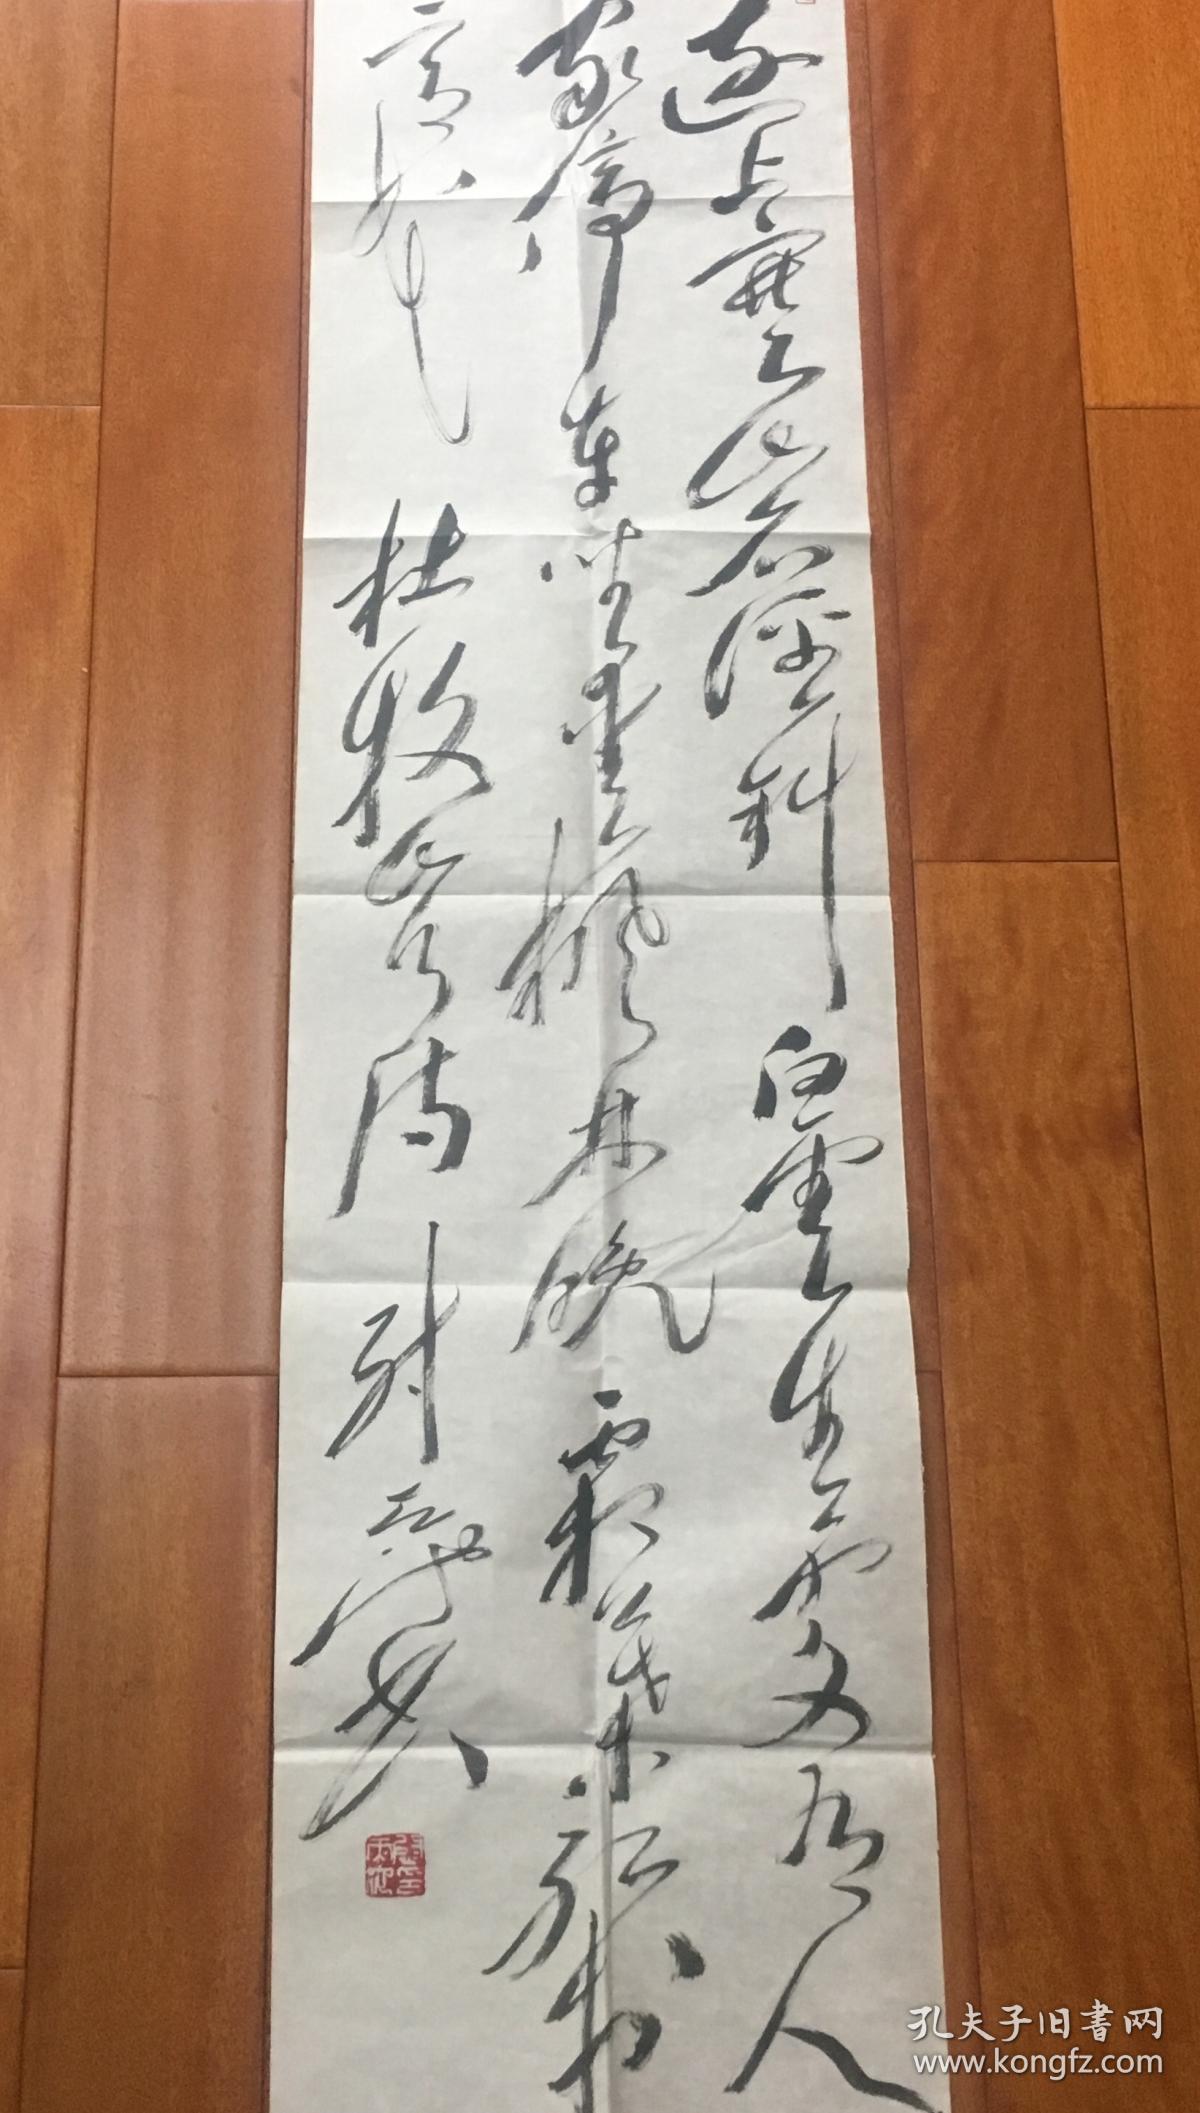 遠上寒山石徑斜白雲生處有人
家停車坐愛楓林晚霜葉紅於
二月花 杜牧山行詩
孔夫子旧书网
www.kongfz.com